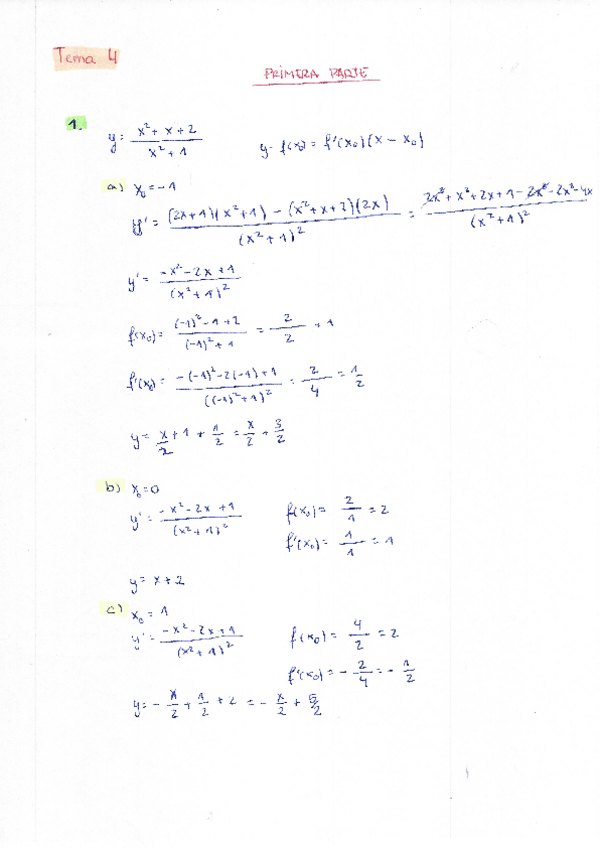 Tema 4
PRIMERA PARTE
1.
y = (x² + x + 2)/(x² + 1)    y - f(x₀) = f'(x₀)(x - x₀)
a) x₀ = -1
y' = ((2x+1)(x²+1) - (x²+x+2)(2x))/(x²+1)² = (2x³ + x² + 2x + 1 - 2x³ - 2x² - 4x)/(x²+1)²
y' = (-x² - 2x + 1)/(x²+1)²
f(x₀) = ((-1)² - 1 + 2)/((-1)² + 1) = 2/2 = 1
f'(x₀) = (-(-1)² - 2(-1) + 1)/((-1)² + 1)² = 2/4 = 1/2
y = x/2 + 1 + 1/2 = x/2 + 3/2
b) x₀ = 0
y' = (-x² - 2x + 1)/(x²+1)²    f(x₀) = 2/1 = 2
f'(x₀) = 1/1 = 1
y = x + 2
c) x₀ = 1
y' = (-x² - 2x + 1)/(x²+1)²    f(x₀) = 4/2 = 2
f'(x₀) = -2/4 = -1/2
y = -x/2 + 1/2 + 2 = -x/2 + 5/2